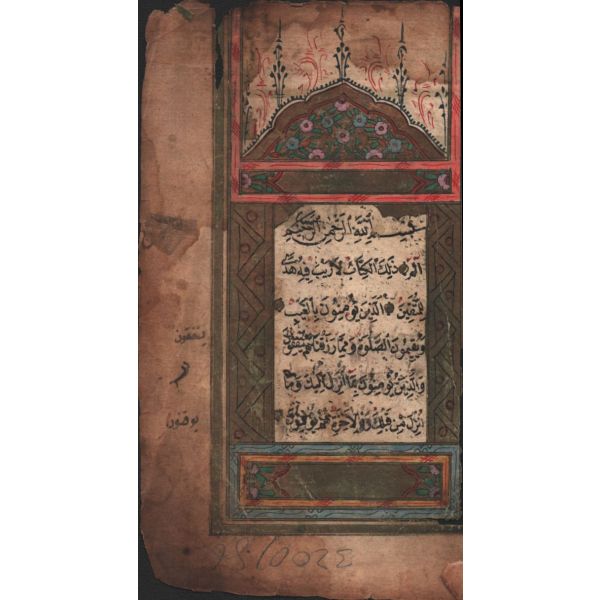 بِسْمِ اللّٰهِ الرَّحْمٰنِ الرَّحِيمِ
الٓمٓ ذٰلِكَ الْكِتَابُ لَارَيْبَ فِيهِ هُدًى
لِلْمُتَّقِينَ الَّذِينَ يُؤْمِنُونَ بِالْغَيْبِ
وَيُقِيمُونَ الصَّلٰوةَ وَمِمَّا رَزَقْنَاهُمْ يُنْفِقُونَ
وَالَّذِينَ يُؤْمِنُونَ بِمَا أُنْزِلَ إِلَيْكَ وَمَا
أُنْزِلَ مِنْ قَبْلِكَ وَبِالْاٰخِرَةِ هُمْ يُوقِنُونَ
ينفقون
يوقنون